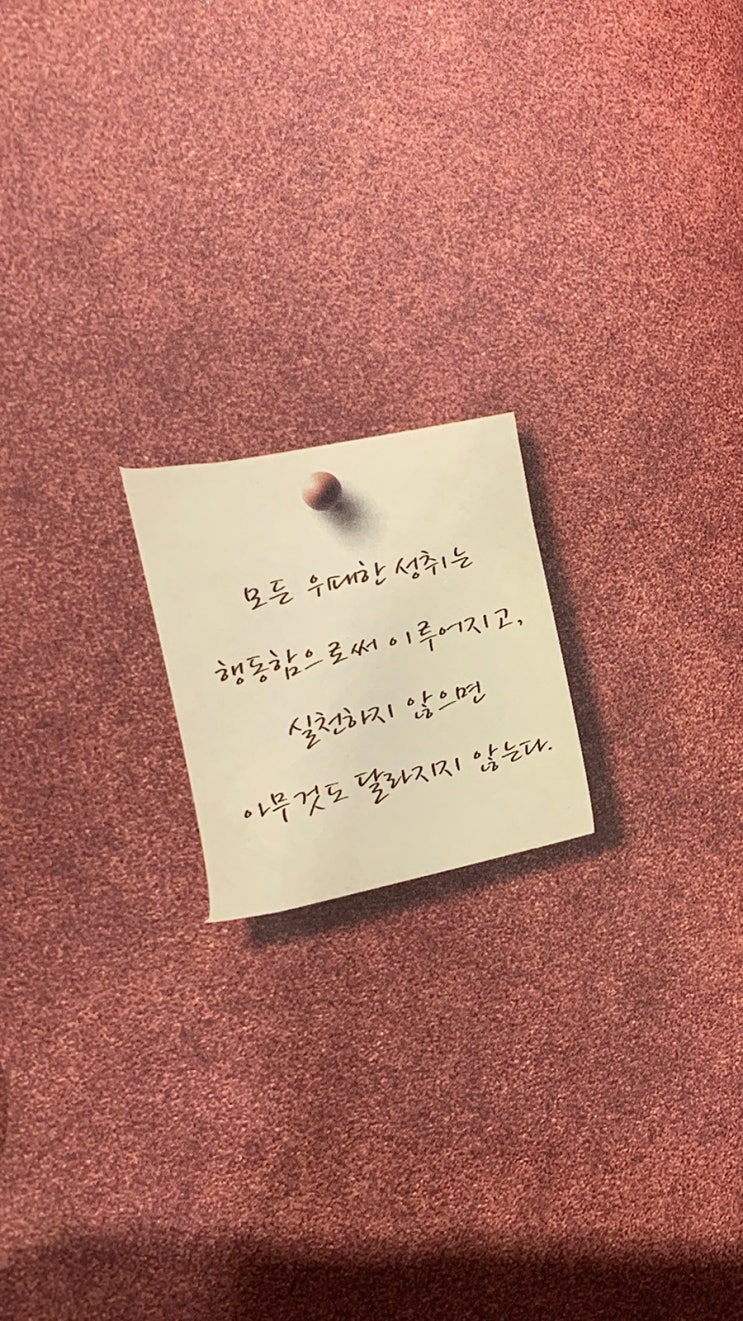 모든 위대한 성취는
행동함으로써 이루어지고,
실천하지 않으면
아무것도 달라지지 않는다.